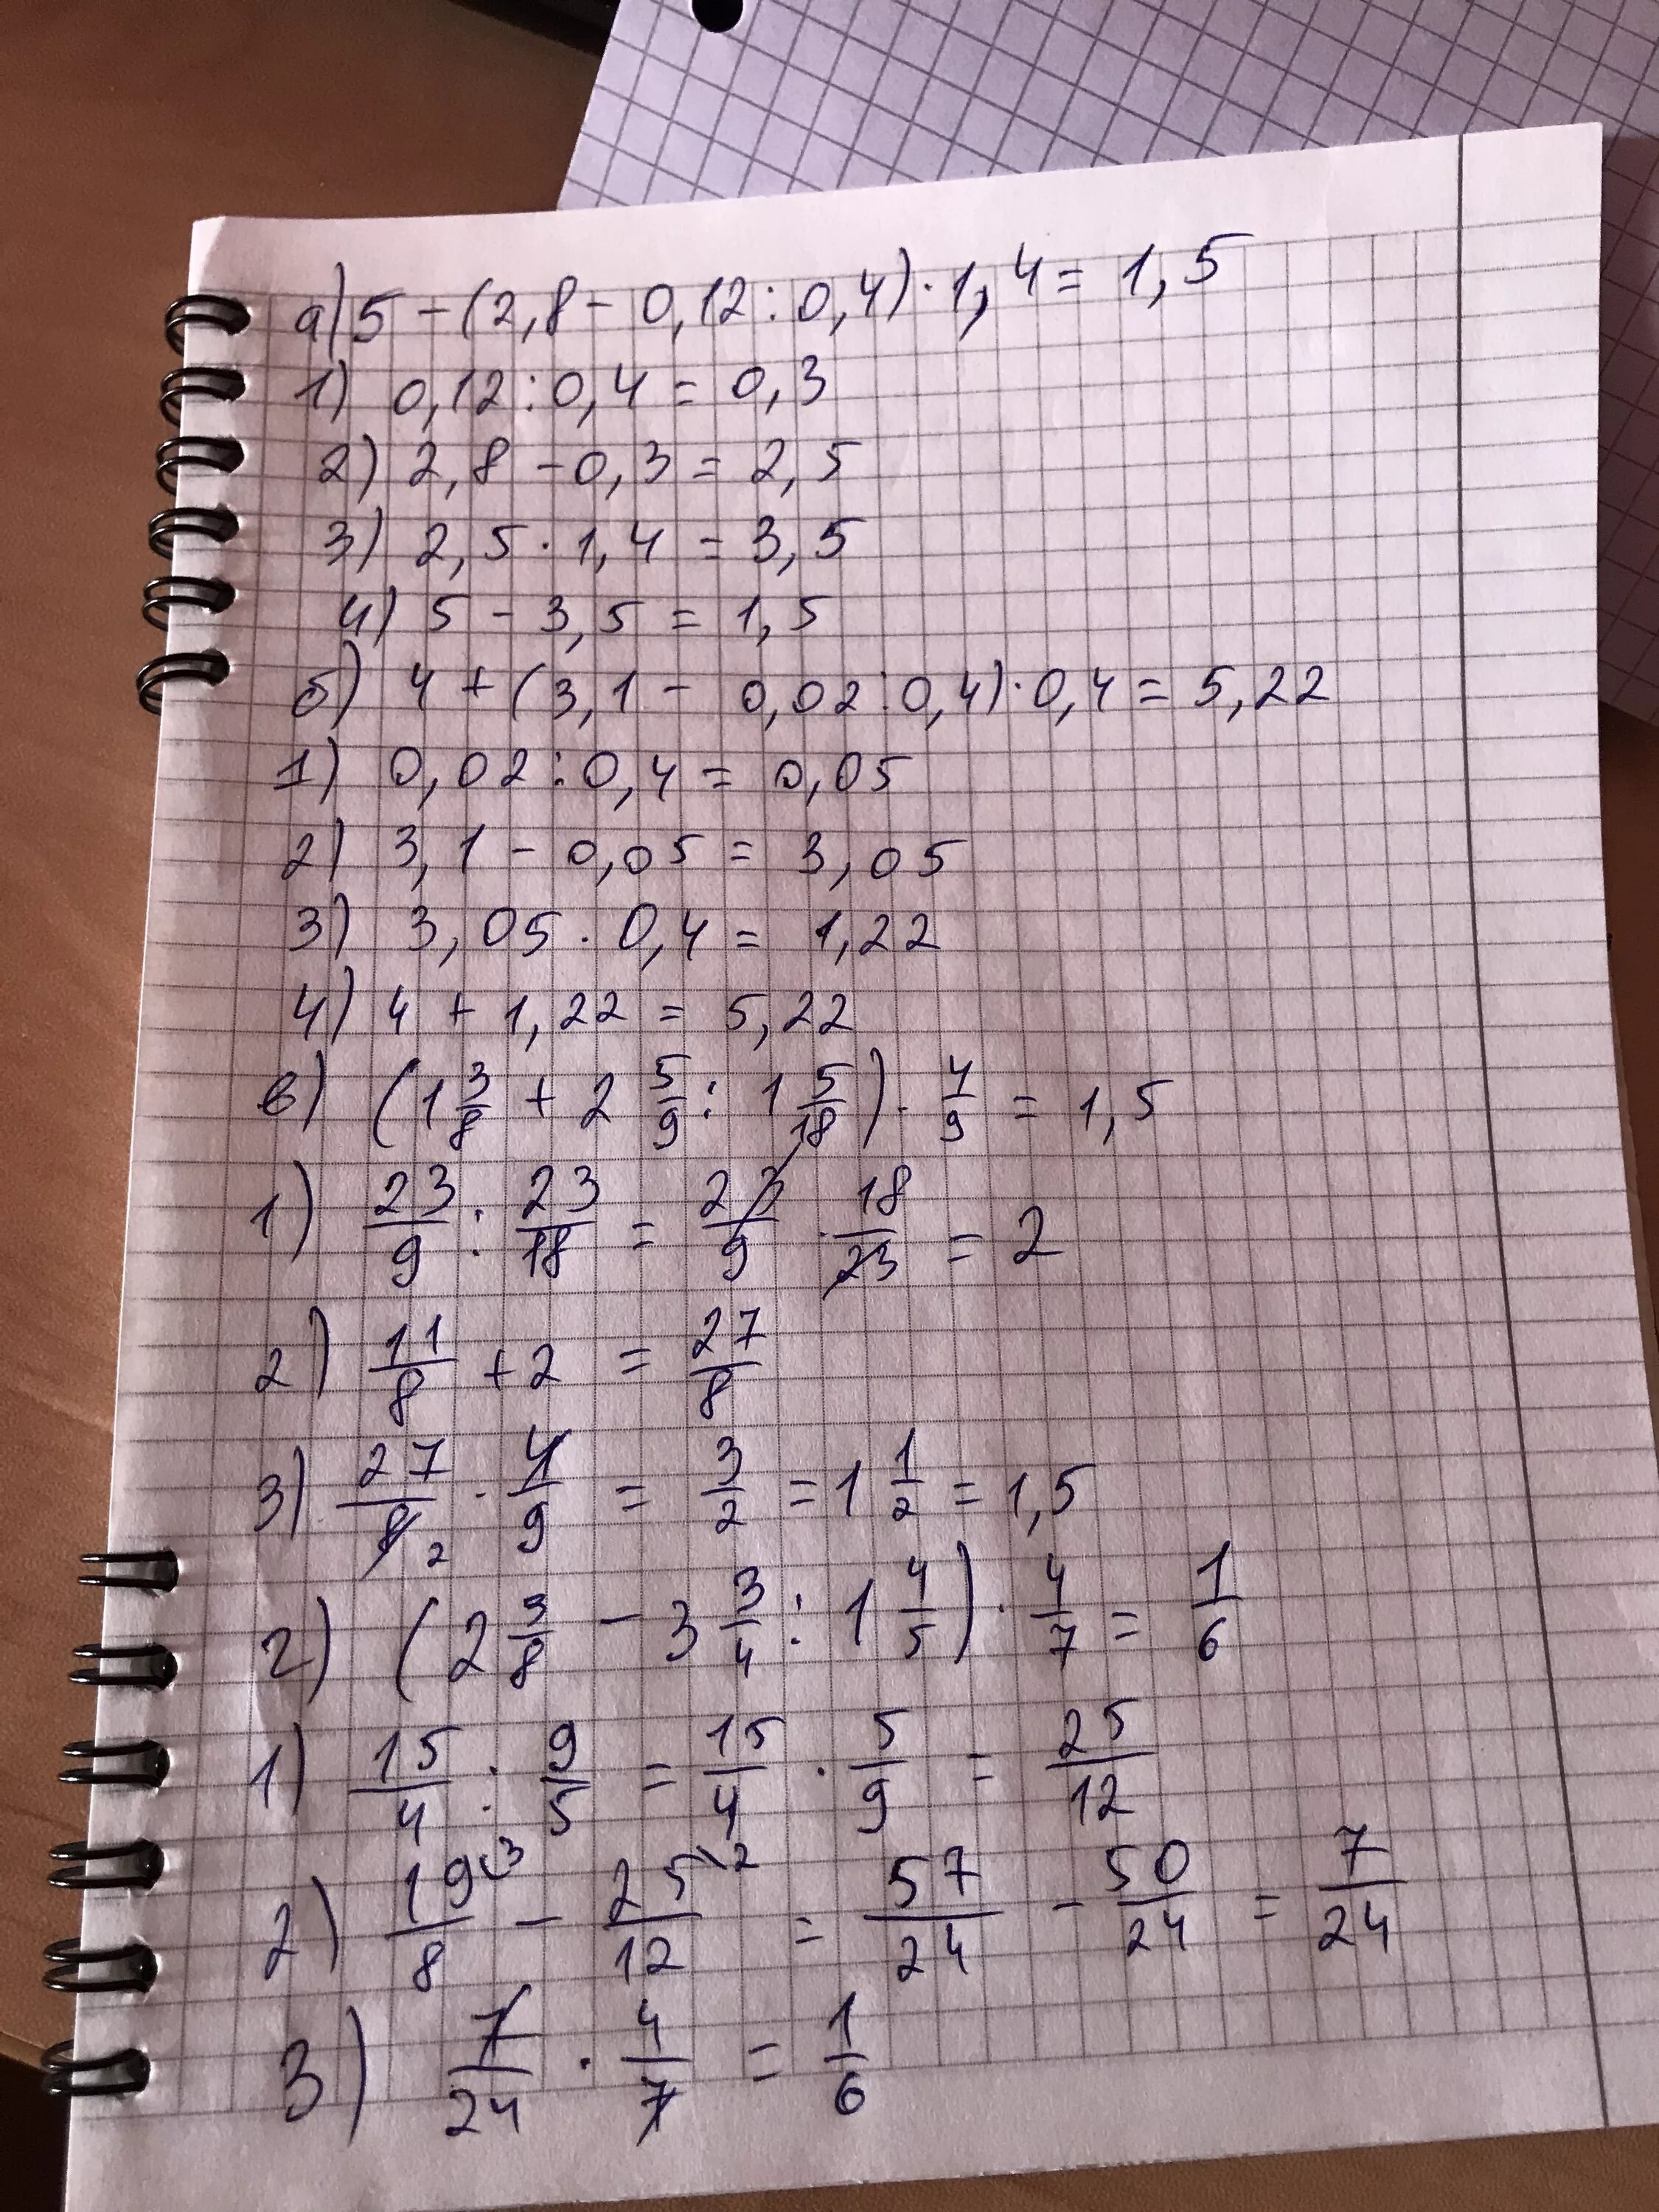 а) 5 - (2,8 - 0,12 : 0,4) · 1,4 = 1,5
1) 0,12 : 0,4 = 0,3
2) 2,8 - 0,3 = 2,5
3) 2,5 · 1,4 = 3,5
4) 5 - 3,5 = 1,5
б) 4 + (3,1 - 0,02 : 0,4) · 0,4 = 5,22
1) 0,02 : 0,4 = 0,05
2) 3,1 - 0,05 = 3,05
3) 3,05 · 0,4 = 1,22
4) 4 + 1,22 = 5,22
в) (1 3/8 + 2 5/9 : 1 5/18) · 4/9 = 1,5
1) 23/9 : 23/18 = 23/9 · 18/23 = 2
2) 11/8 + 2 = 27/8
3) 27/8 2 · 4/9 = 3/2 = 1 1/2 = 1,5
г) (2 3/8 - 3 3/4 : 1 4/5) · 4/7 = 1/6
1) 15/4 : 9/5 = 15/4 · 5/9 = 25/12
2) 19\3/8 - 25\2/12 = 57/24 - 50/24 = 7/24
3) 7/24 · 4/7 = 1/6